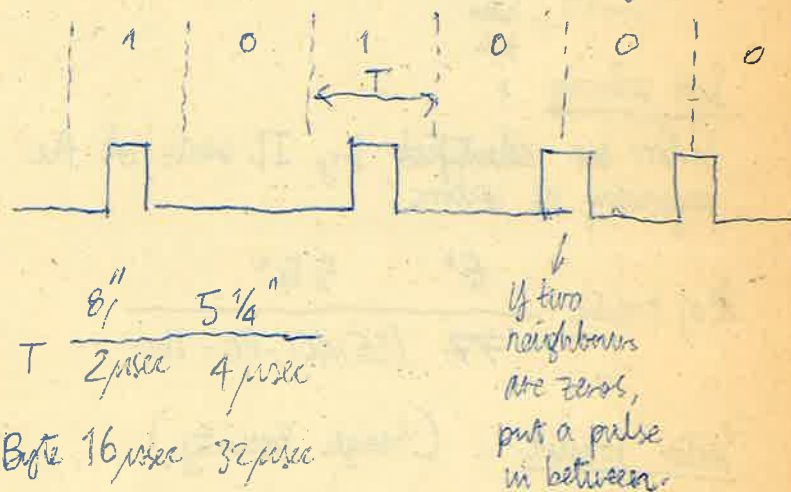 1 0 1 0 0 0
T
8" 5 1/4"
T 2 µsec 4 µsec
Byte 16 µsec 32 µsec
if two
neighbours
are zeros,
put a pulse
in between.